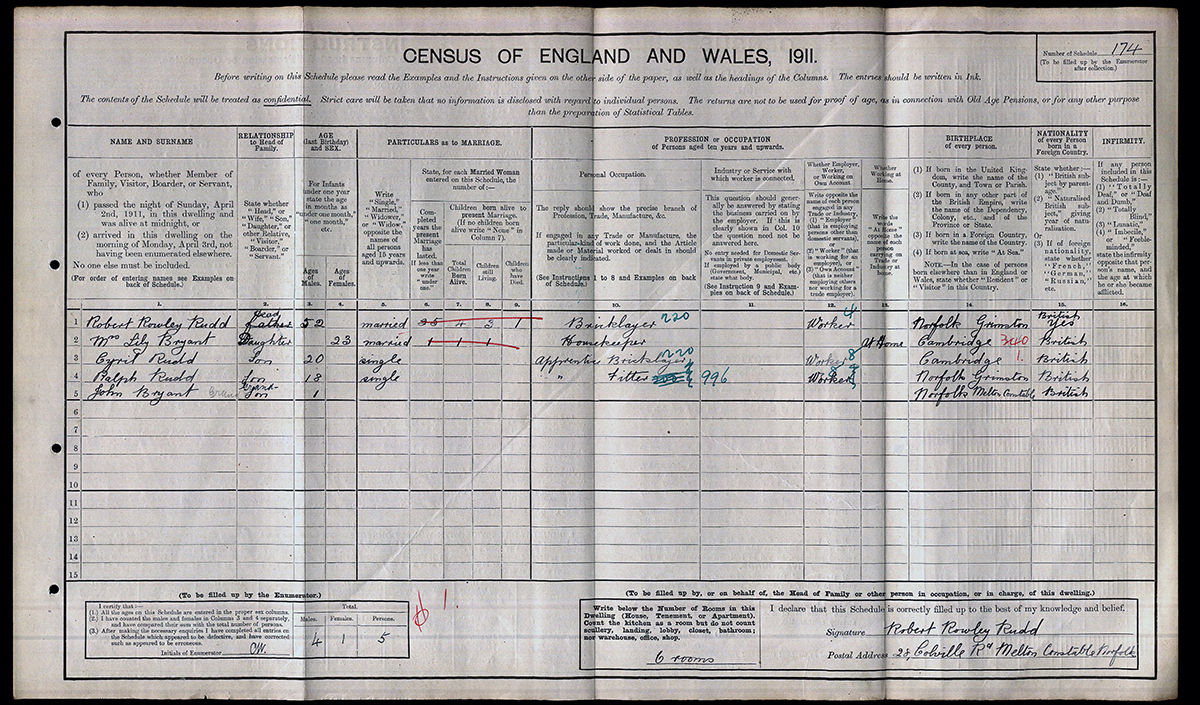 CENSUS OF ENGLAND AND WALES, 1911.
Number of Schedule 174
(To be filled up by the Enumerator after collection.)
Before writing on this Schedule please read the Examples and the Instructions given on the other side of the paper, as well as the headings of the Columns. The entries should be written in Ink.
The contents of the Schedule will be treated as confidential. Strict care will be taken that no information is disclosed with regard to individual persons. The returns are not to be used for proof of age, as in connection with Old Age Pensions, or for any other purpose
than the preparation of Statistical Tables.
NAME AND SURNAME
of every Person, whether Member of
Family, Visitor, Boarder, or Servant,
who
(1) passed the night of Sunday, April
2nd, 1911, in this dwelling and
was alive at midnight, or
(2) arrived in this dwelling on the
morning of Monday, April 3rd, not
having been enumerated elsewhere.
No one else must be included.
(For order of entering names see Examples on
back of Schedule.)
RELATIONSHIP
to Head of
Family.
State whether
"Head," or
"Wife," "Son,"
"Daughter," or
other Relative,
"Visitor,"
"Boarder," or
"Servant."
AGE
(last Birthday)
and SEX.
For Infants
under one year
state the age
in months as
"under one month,"
"one month,"
etc.
Ages
of
Males.
Ages
of
Females.
PARTICULARS as to MARRIAGE.
Write
"Single,"
"Married,"
"Widower,"
or "Widow,"
opposite the
names of
all persons
aged 15 years
and upwards.
State, for each Married Woman
entered on this Schedule, the
number of:—
Completed
years the
present
Marriage
has
lasted.
If less than
one year
write
"under
one."
Children born alive to
present Marriage.
(If no children born
alive write "None" in
Column 7).
Total
Children
Born
Alive.
Children
still
Living.
Children
who
have
Died.
PROFESSION or OCCUPATION
of Persons aged ten years and upwards.
Personal Occupation.
The reply should show the precise branch of
Profession, Trade, Manufacture, &c.
If engaged in any Trade or Manufacture, the
particular kind of work done, and the Article
made or Material worked or dealt in should
be clearly indicated.
(See Instructions 1 to 8 and Examples on back
of Schedule.)
Industry or Service with
which worker is connected.
This question should generally
be answered by stating
the business carried on by
the employer. If this is
clearly shown in Col. 10
the question need not be
answered here.
No entry needed for Domestic Servants
in private employment.
If employed by a public body
(Government, Municipal, etc.)
state what body.
(See Instruction 9 and Examples
on back of Schedule.)
Whether Employer,
Worker,
or Working on
Own Account
Write opposite the
name of each person
engaged in any
Trade or Industry,
(1) "Employer"
(that is employing
persons other than
domestic servants),
or
(2) "Worker" (that
is working for an
employer), or
(3) "Own Account"
(that is neither
employing others
nor working for a
trade employer).
Whether
Working at
Home.
Write the
words
"At Home"
opposite the
name of each
person
carrying on
Trade or
Industry at
Home.
BIRTHPLACE
of every person.
(1) If born in the United Kingdom,
write the name of the
County, and Town or Parish.
(2) If born in any other part of
the British Empire, write
the name of the Dependency,
Colony, etc., and of the
Province or State.
(3) If born in a Foreign Country,
write the name of the Country.
(4) If born at sea, write "At Sea."
NOTE.—In the case of persons
born elsewhere than in England or
Wales, state whether "Resident" or
"Visitor" in this Country.
NATIONALITY
of every Person
born in a
Foreign Country.
State whether:—
(1) "British subject
by parentage."
(2) "Naturalised
British subject,"
giving
year of naturalisation.
Or
(3) If of foreign
nationality,
state whether
"French,"
"German,"
"Russian,"
etc.
INFIRMITY.
If any person
included in this
Schedule is:—
(1) "Totally
Deaf," or "Deaf
and Dumb,"
(2) "Totally
Blind,"
(3) "Lunatic,"
(4) "Imbecile,"
or "Feeble-minded,"
state the infirmity
opposite that person's
name, and
the age at which
he or she became
afflicted.
1. 2. 3. 4. 5. 6. 7. 8. 9. 10. 11. 12. 13. 14. 15. 16.
1 Robert Rowley Rudd Head Father 52 married 25 4 3 1 Bricklayer 220 Worker 4 Norfolk Grimston British Yes
2 Mrs Lily Bryant Daughter 23 married 1 1 1 Housekeeper At Home Cambridge 340 British
3 Cyril Rudd Son 20 single Apprentice Bricklayer 220 Worker 8 Cambridge 1. British
4 Ralph Rudd Son 18 single " Fitter 996 Worker Norfolk Grimston British
5 John Bryant Grand Grand Son 1 Norfolk Melton Constable British
6
7
8
9
10
11
12
13
14
15
(To be filled up by the Enumerator.)
I certify that:—
(1.) All the ages on this Schedule are entered in the proper sex columns.
(2.) I have counted the males and females in Columns 3 and 4 separately,
and have compared their sum with the total number of persons.
(3.) After making the necessary enquiries I have completed all entries on
the Schedule which appeared to be defective, and have corrected
such as appeared to be erroneous.
Initials of Enumerator
Total.
Males. Females. Persons.
4 1 5
1
(To be filled up by, or on behalf of, the Head of Family or other person in occupation, or in charge, of this dwelling.)
Write below the Number of Rooms in this
Dwelling (House, Tenement, or Apartment).
Count the kitchen as a room but do not count
scullery, landing, lobby, closet, bathroom;
nor warehouse, office, shop.
6 rooms
I declare that this Schedule is correctly filled up to the best of my knowledge and belief.
Signature Robert Rowley Rudd
Postal Address 28, Colville Rd Melton Constable Norfolk